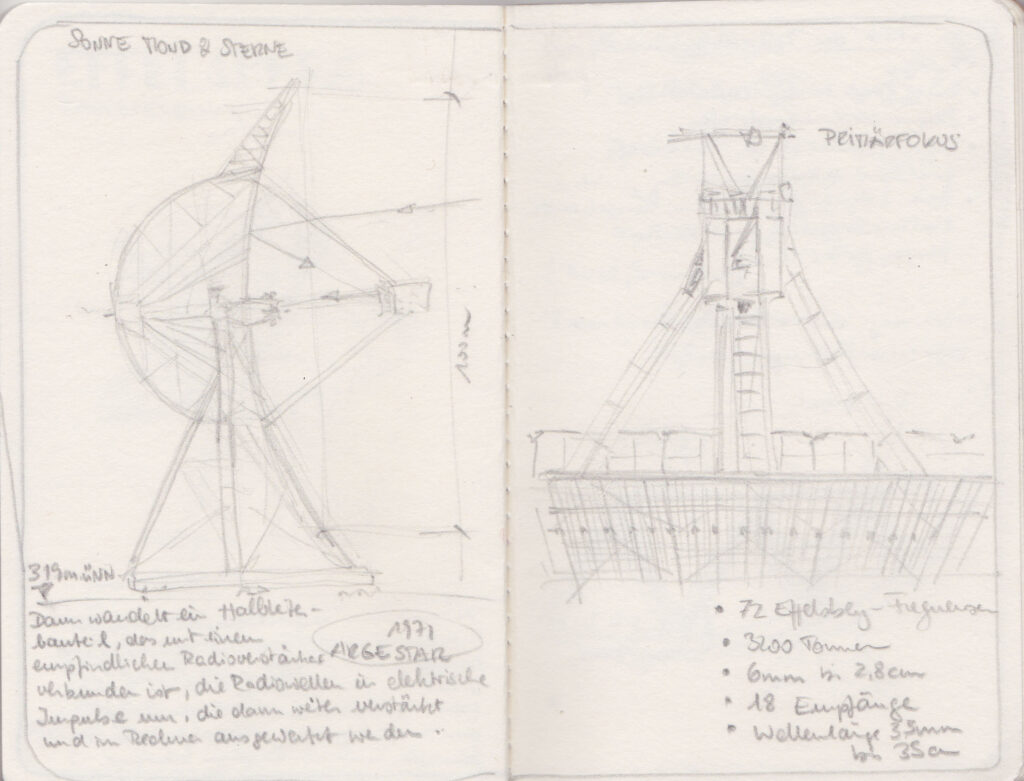 SONNE MOND & STERNE
100 m
319 m üNN
Dann wandelt ein Halbleiter-
bauteil, das mit einem
empfindlichen Radioverstärker
verbunden ist, die Radiowellen in elektrische
Impulse um, die dann weiter verstärkt
und im Rechner ausgewertet werden.
1971
ARGE STAR
PRIMÄRFOKUS
• 72 Effelsberg-Frequenzen
• 3200 Tonnen
• 6mm bis 2,8cm
• 18 Empfänge
• Wellenlänge 3,5mm
bis 35cm